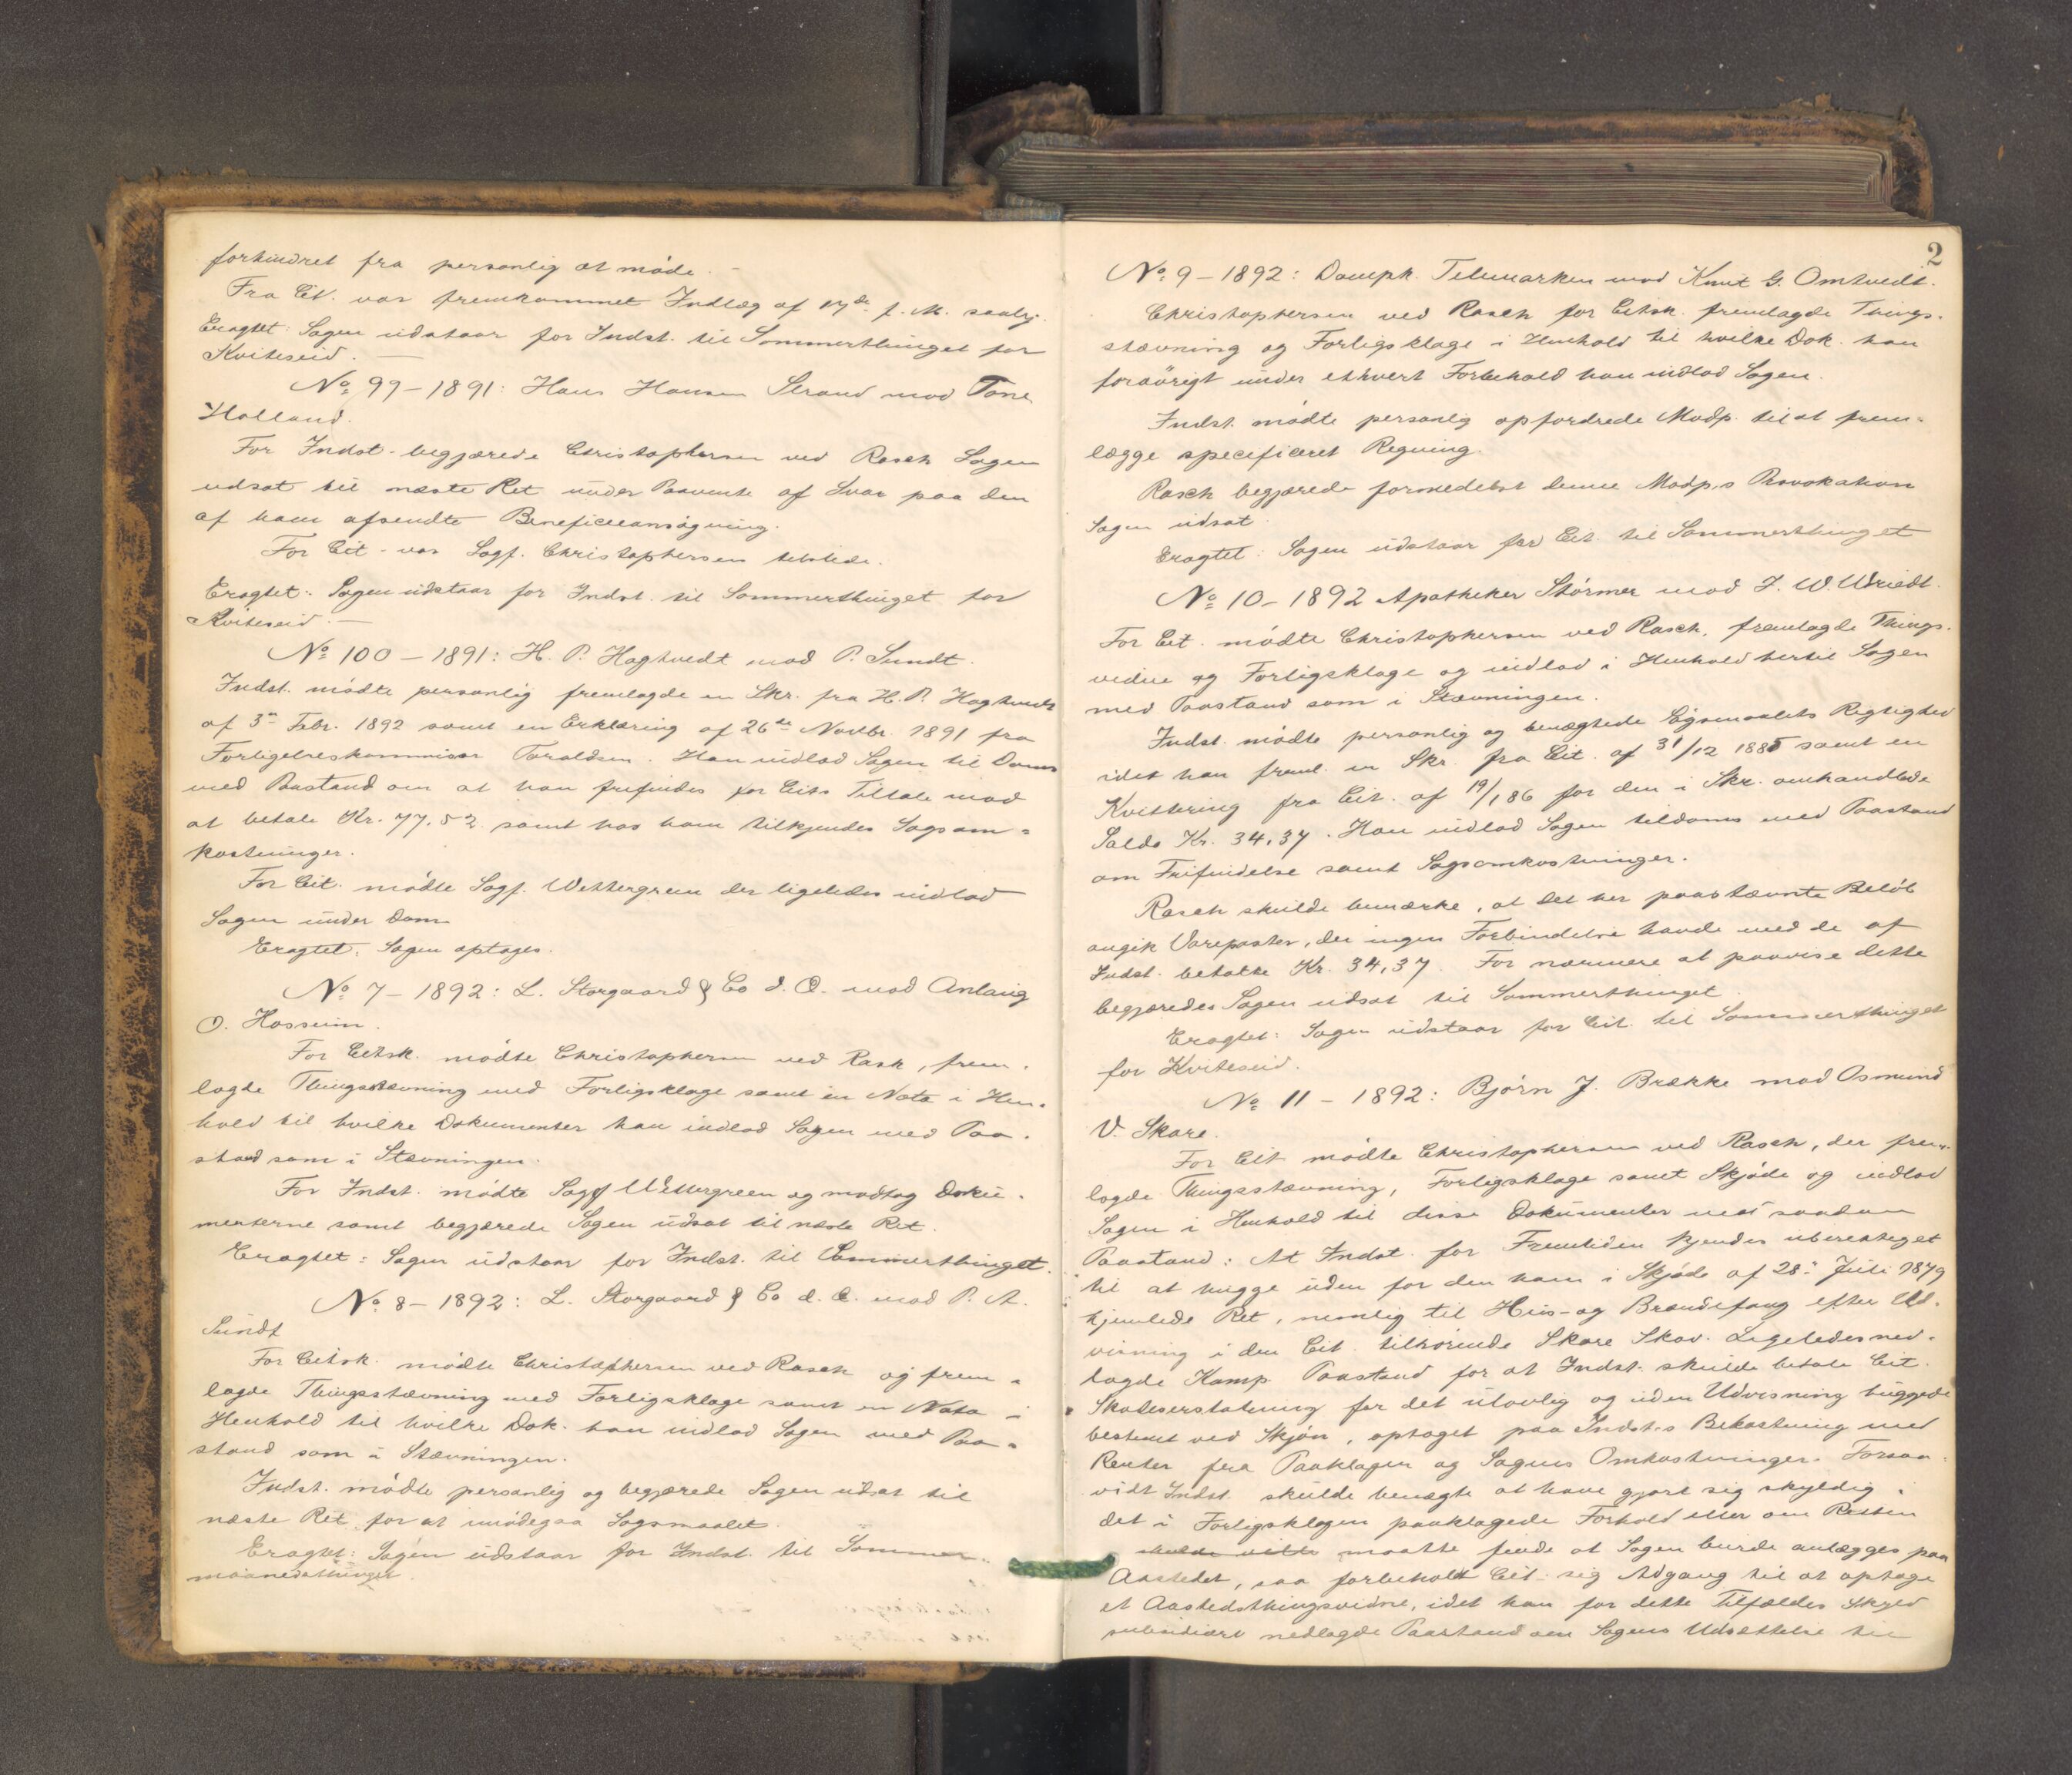 forhindret fra personlig at møde. –
Fra Cit. var fremkommet Indlæg af 17de f. M. saaly.
Eragtet: Sagen udstaar for Indst. til Sommerthinget for
Kviteseid. —
No 99 – 1891: Hans Hansen Strand mod Tone
Holland.
For Indst. begjærede Christophersen ved Rasch Sagen
udsat til næste Ret under Paavente af Svar paa den
af ham afsendte Beneficieansøgning.
For Cit. var Sagf. Christophersen tilstede.
Eragtet: Sagen udstaar for Indst. til Sommerthinget for
Kviteseid. —
No 100 – 1891: H. P. Haghvedt mod P. Sundt.
Indst. mødte personlig fremlagde en Skr. fra H. P. Haghvedt
af 3die Febr. 1892 samt en Erklæring af 26de Novbr. 1891 fra
Forligelseskommissær Taraldsen. Han indlod Sagen til Doms
med Paastand om at han frifindes for Cits Tiltale mod
at betale Kr. 77,52 samt hos ham tilkjendes Sagsom=
kostninger.
For Cit. mødte Sagf. Wettergreen der ligeledes indlod
Sagen under Dom.
Eragtet: Sagen optages.
No 7 – 1892: L. Storgaard & Co d. O. mod Anlaug
O. Hosseim.
For Citsk. mødte Christophersen ved Rask, frem-
lagde Thingsstævning med Forligsklage samt en Nota i Hen-
hold til hvilke Dokumenter han indlod Sagen med Paa-
stand som i Stævningen.
For Indst. mødte Sagf Wettergreen og modtog Doku-
menterne samt begjærede Sagen udsat til næste Ret.
Eragtet: Sagen udstaar for Indst. til Sommerthinget.
No 8 – 1892: L. Storgaard & Co d. O. mod P. A.
Sundt
For Citsk. mødte Christophersen ved Rasch og frem-
lagde Thingsstævning med Forligsklage samt en Nota i
Henhold til hvilke Dok. han indlod Sagen med Paa-
stand som i Stævningen.
Indst. mødte personlig og begjærede Sagen udsat til
næste Ret for at imødegaa Sagsmaalet.
Eragtet: Sagen udstaar for Indst. til Sommer-
maanedsthinget.
2
No 9 – 1892: Dampk. Telemarken mod Knut G. Omtvedt.
Christophersen ved Rasch for Citsk. fremlagde Things-
stævning og Forligsklage i Henhold til hvilke Dok. han
forøvrigt under ethvert Forbehold han indlod Sagen.
Indst. mødte personlig opfordrede Modp. til at frem-
lægge specificeret Regning.
Rasch begjærede formedelst denne Modp.s Provokation
Sagen udsat.
Eragtet: Sagen udstaar for Cit. til Sommerthinget
No 10 – 1892 Apotheker Størmer mod J. W. Wriedt.
For Cit. mødte Christophersen ved Rasch, fremlagde Things-
vidne og Forligsklage og indlod i Henhold hertil Sagen
med Paastand som i Stævningen.
Indst. mødte personlig og benægtede Søgsmaalets Rigtighed
idet han freml. en Skr. fra Cit. af 31/12 1885 samt en
Kvittering fra Cit. af 19/1 86 for den i Skr. omhandlede
Saldo Kr. 34,37. Han indlod Sagen tildoms med Paastand
om Frifindelse samt Sagsomkostninger.
Rasch skulde bemærke, at det her paastævnte Beløb
angik Vareposter, der ingen Forbindelse havde med de af
Indst. betalte Kr. 34,37. For nærmere at paavise dette
begjæredes Sagen udsat til Sommerthinget.
Eragtet: Sagen udstaar for Cit. til Sommerthinget
for Kviteseid.
No 11 – 1892: Bjørn J. Brække mod Osmund
V. Skare.
For Cit mødte Christophersen ved Rasch, der frem-
lagde Thingsstævning, Forligsklage samt Skjøde og indlod
Sagen i Henhold til disse Dokumenter med saadan
Paastand: At Indst. for Fremtiden kjendes uberettiget
til at hugge uden for den ham i Skjøde af 28de Juli 1879
hjemlede Ret, nemlig til Hus- og Brændefang efter Ud-
visning i den Cit. tilhørende Skare Skov. Ligeledes ned-
lagde Komp. Paastand for at Indst. skulde betale Cit.
Skadeserstatning for det ulovlig og uden Udvisning huggede
bestemt ved Skjøn, optaget paa Indst.s Bekostning med
Renter fra Paaklagen og Sagens Omkostninger. Forsaa-
vidt Indst. skulde benægte at have gjort sig skyldig i
det i Forligsklagen paaklagede Forhold eller om Retten
skulde ville maatte finde at Sagen burde anlægges paa
Aastedet, saa forbeholdt Cit. sig Adgang til at optage
et Aastedsthingsvidne, idet han for dette Tilfældes Skyld
subsidiært nedlagde Paastand om Sagens Udsættelse til